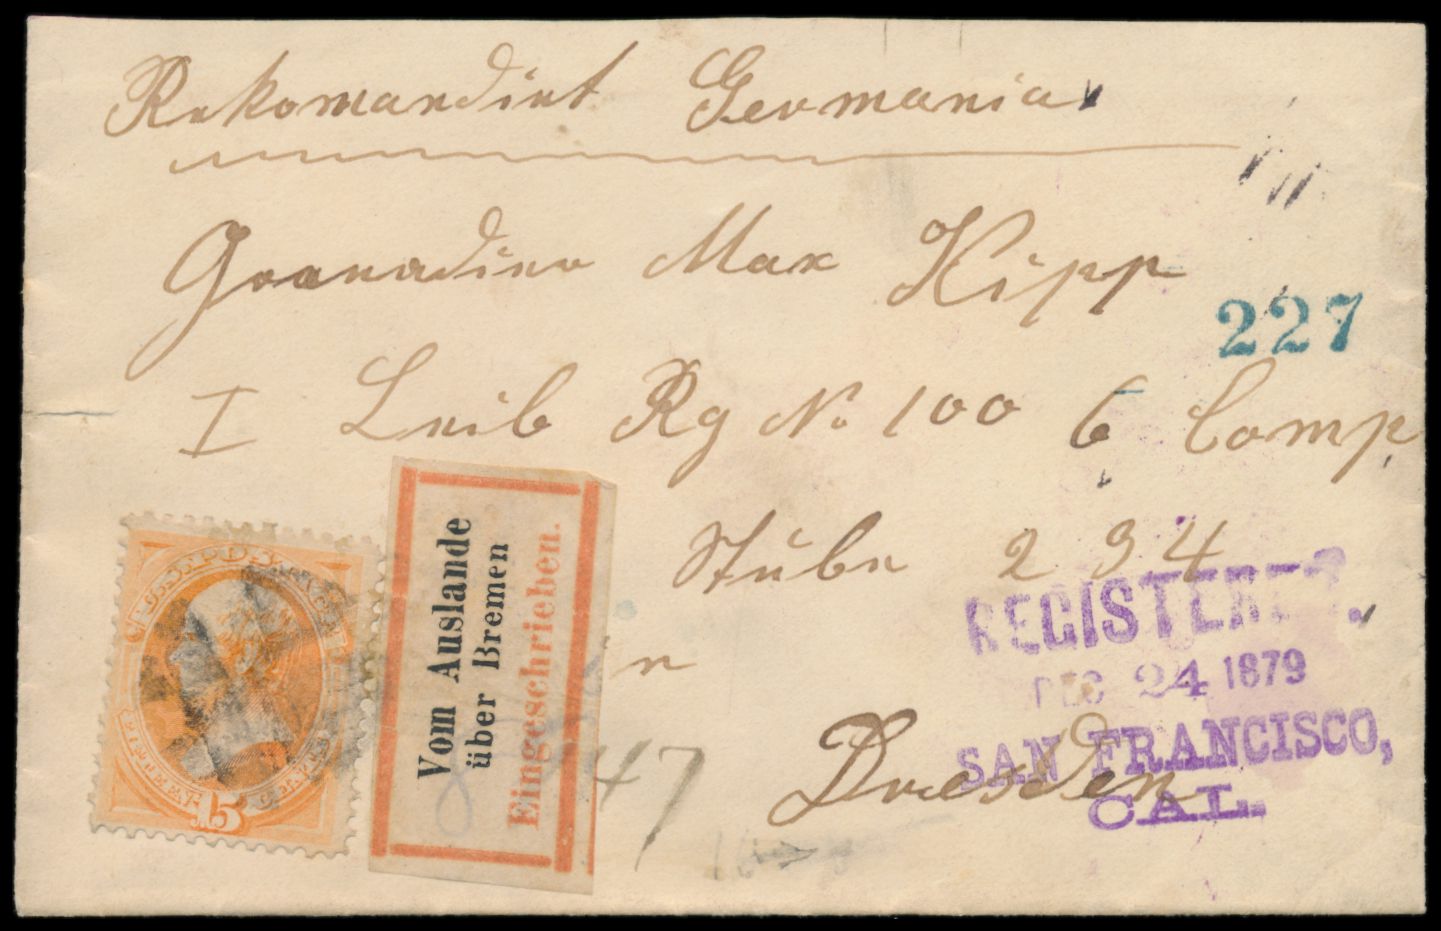 Rekomandirt Germania
Granadier Max Kipp
227
I Leib Rg No. 100 6 Comp
Stube 234
in
Dresden
47
REGISTERED.
DEC 24 1879
SAN FRANCISCO,
CAL.
Vom Auslande
über Bremen
Eingeschrieben.
U.S. POSTAGE
FIFTEEN 15 CENTS